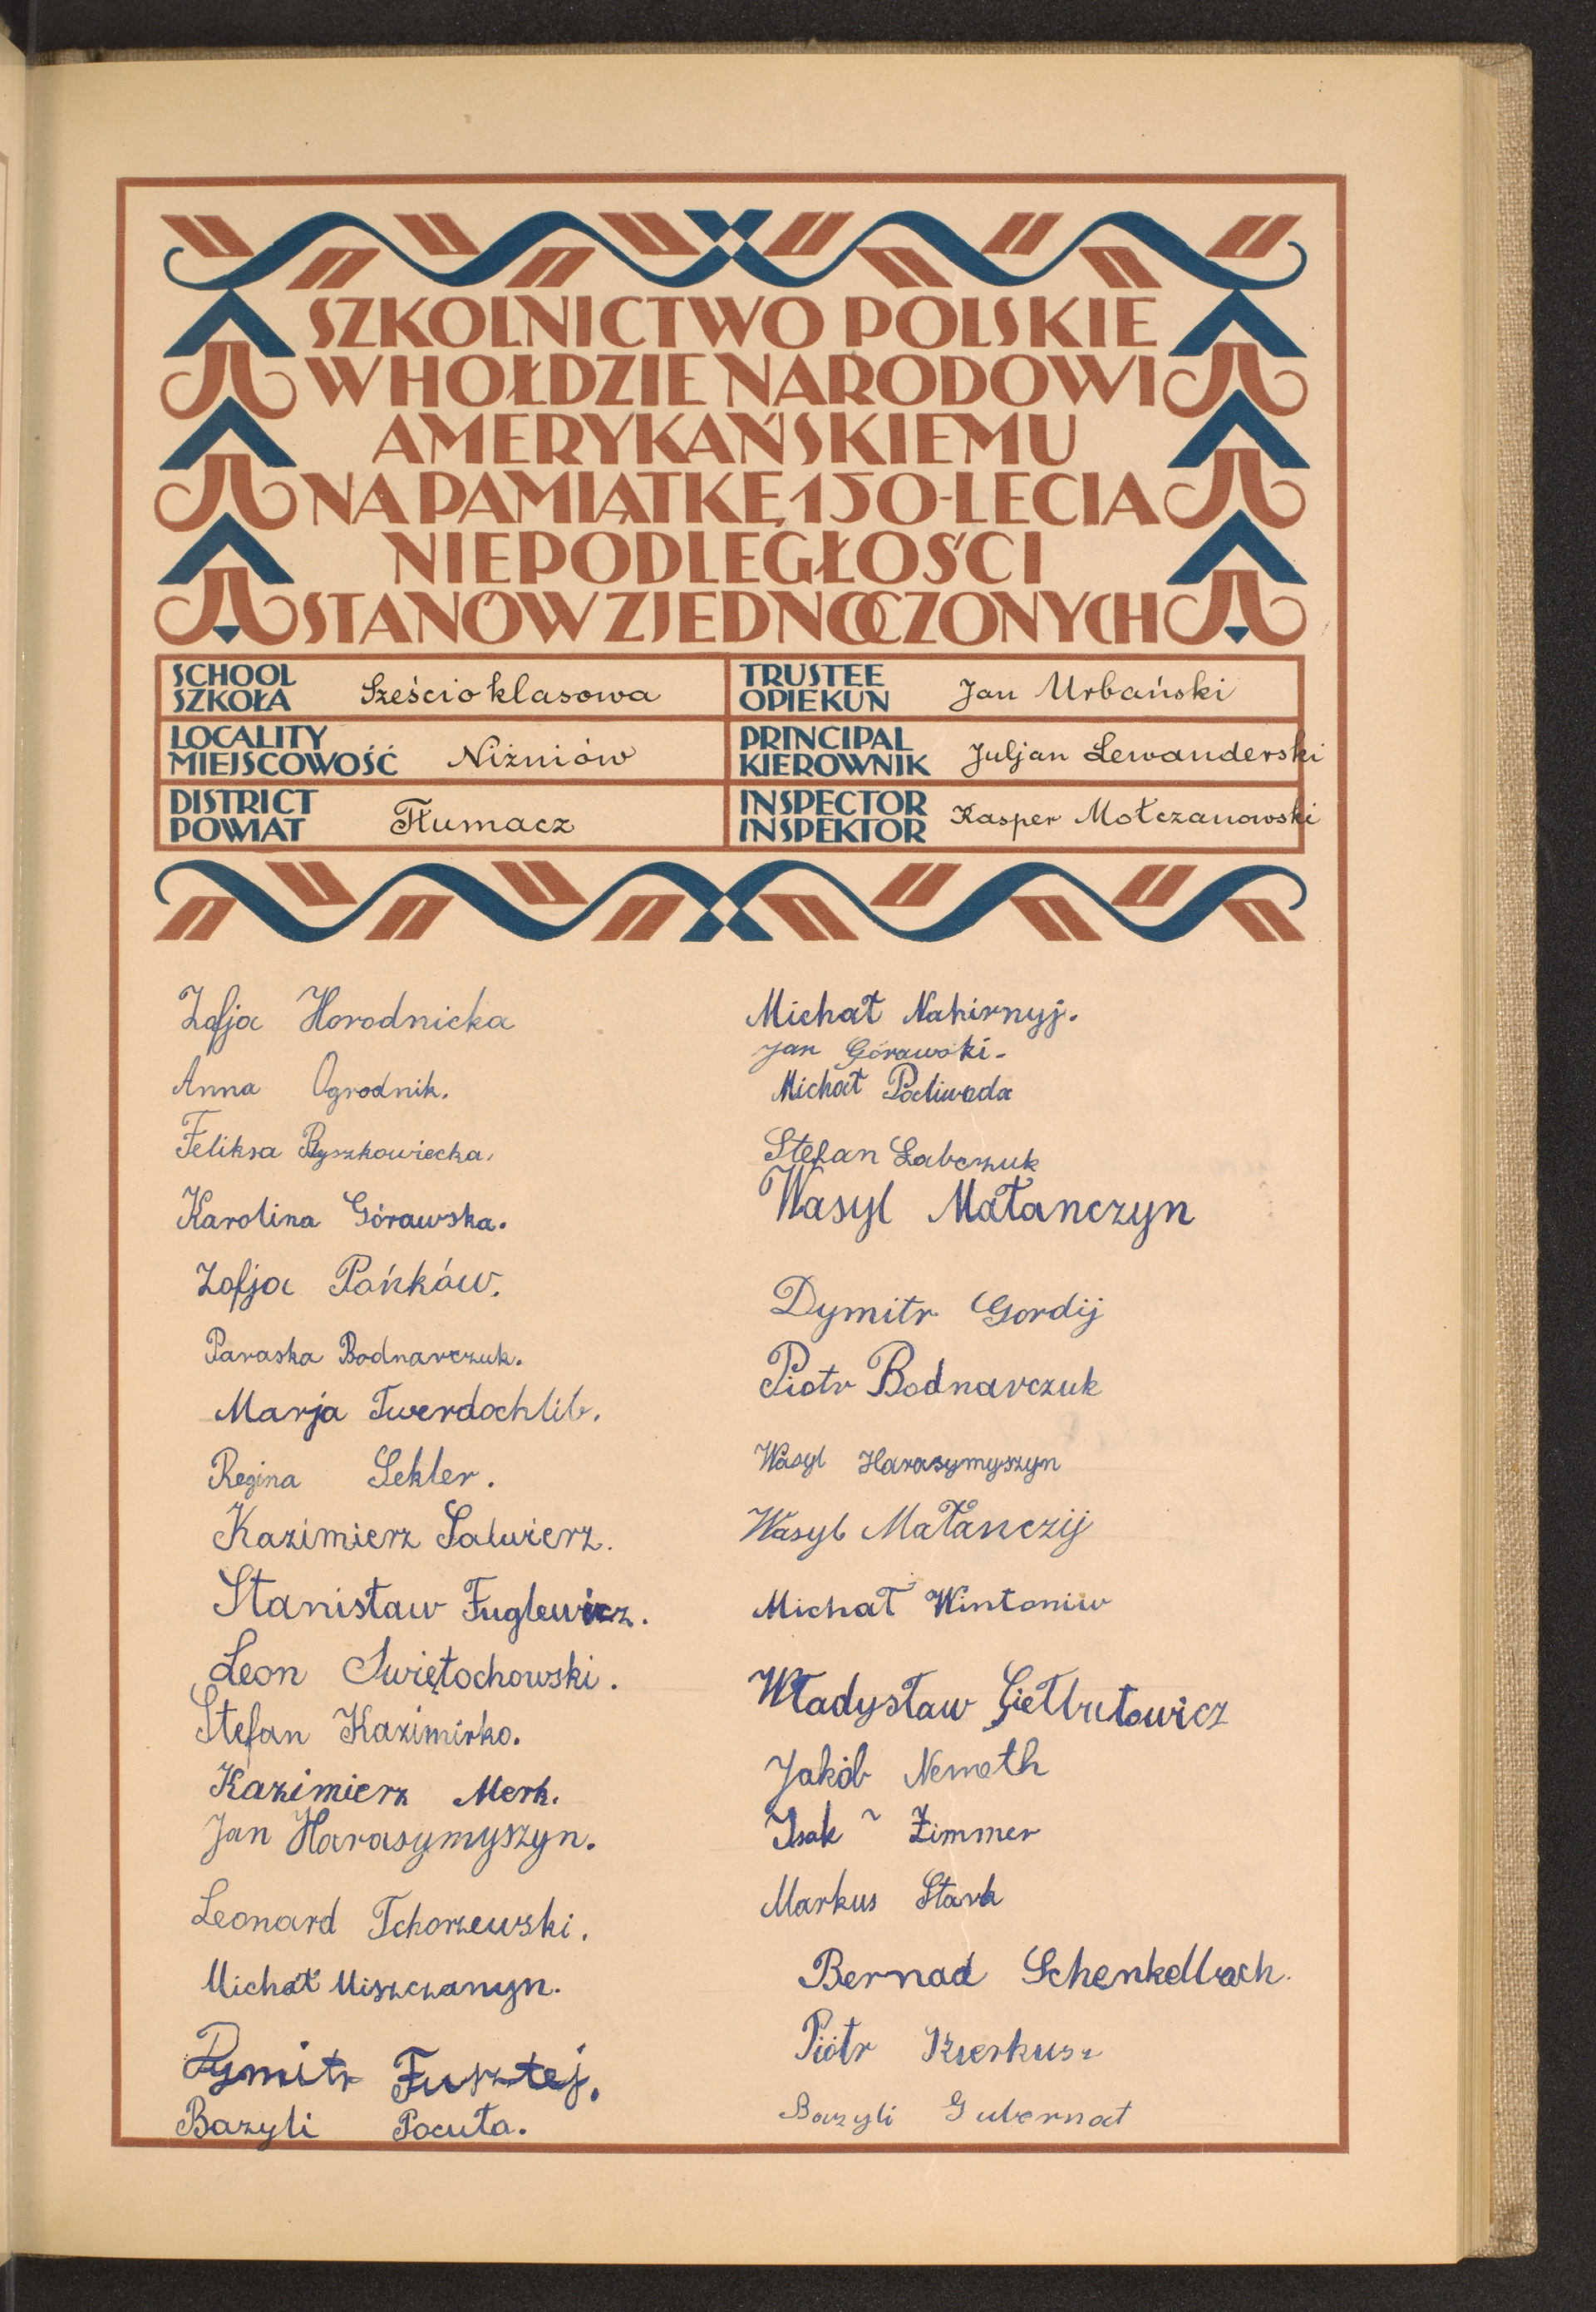 SZKOLNICTWO POLSKIE
W HOŁDZIE NARODOWI
AMERYKAŃSKIEMU
NA PAMIĄTKĘ 150-LECIA
NIEPODLEGŁOŚCI
STANÓW ZJEDNOCZONYCH
SCHOOL
SZKOŁA
Sześcioklasowa
TRUSTEE
OPIEKUN
Jan Urbański
LOCALITY
MIEJSCOWOŚĆ
Niżniów
PRINCIPAL
KIEROWNIK
Juljan Lewanderski
DISTRICT
POWIAT
Tłumacz
INSPECTOR
INSPEKTOR
Kasper Mołczanowski
Zofja Horodnicka
Anna Ogrodnik.
Feliksa Ryszkowiecka.
Karolina Górawska.
Zofja Pańków.
Paraska Bodnarczuk.
Marja Twerdochlib.
Regina Sekler.
Kazimierz Salwierz.
Stanisław Fuglewicz.
Leon Swiętochowski.
Stefan Kazimirko.
Kazimierz Merk.
Jan Harasymyszyn.
Leonard Tchorzewski.
Michał Miszczanyn.
Dymitr Fusztej.
Bazyli Pocuta.
Michał Nahirnyj.
Jan Górawski.
Michał Paliwoda
Stefan Łabczuk
Wasyl Matanczyn
Dymitr Gordij
Piotr Bodnarczuk
Wasyl Harasymyszyn
Wasyl Matanczij
Michał Wintoniw
Władysław Giełbutowicz
Jakób Nemeth
Isak Zimmer
Markus Stark
Bernad Schenkelbach.
Piotr
Bazyli Gubernat